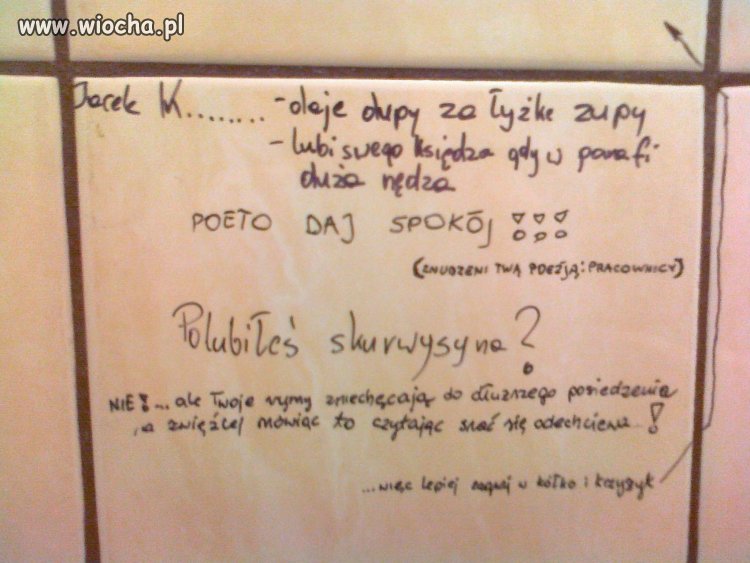 www.wiocha.pl
Jacek K........ - daje dupy za łyżkę zupy
- lubi swego księdza gdy w parafi
duża nędza
POETO DAJ SPOKÓJ !!!
(ZNUDZENI TWĄ POEZJĄ: PRACOWNICY)
Polubiłeś skurwysyna?
NIE!... ale Twoje rymy zniechęcają do dłuższego posiedzenia
, a zwięźlej mówiąc to czytając srać się odechciewa..!
...więc lepiej zagraj w kółko i krzyżyk